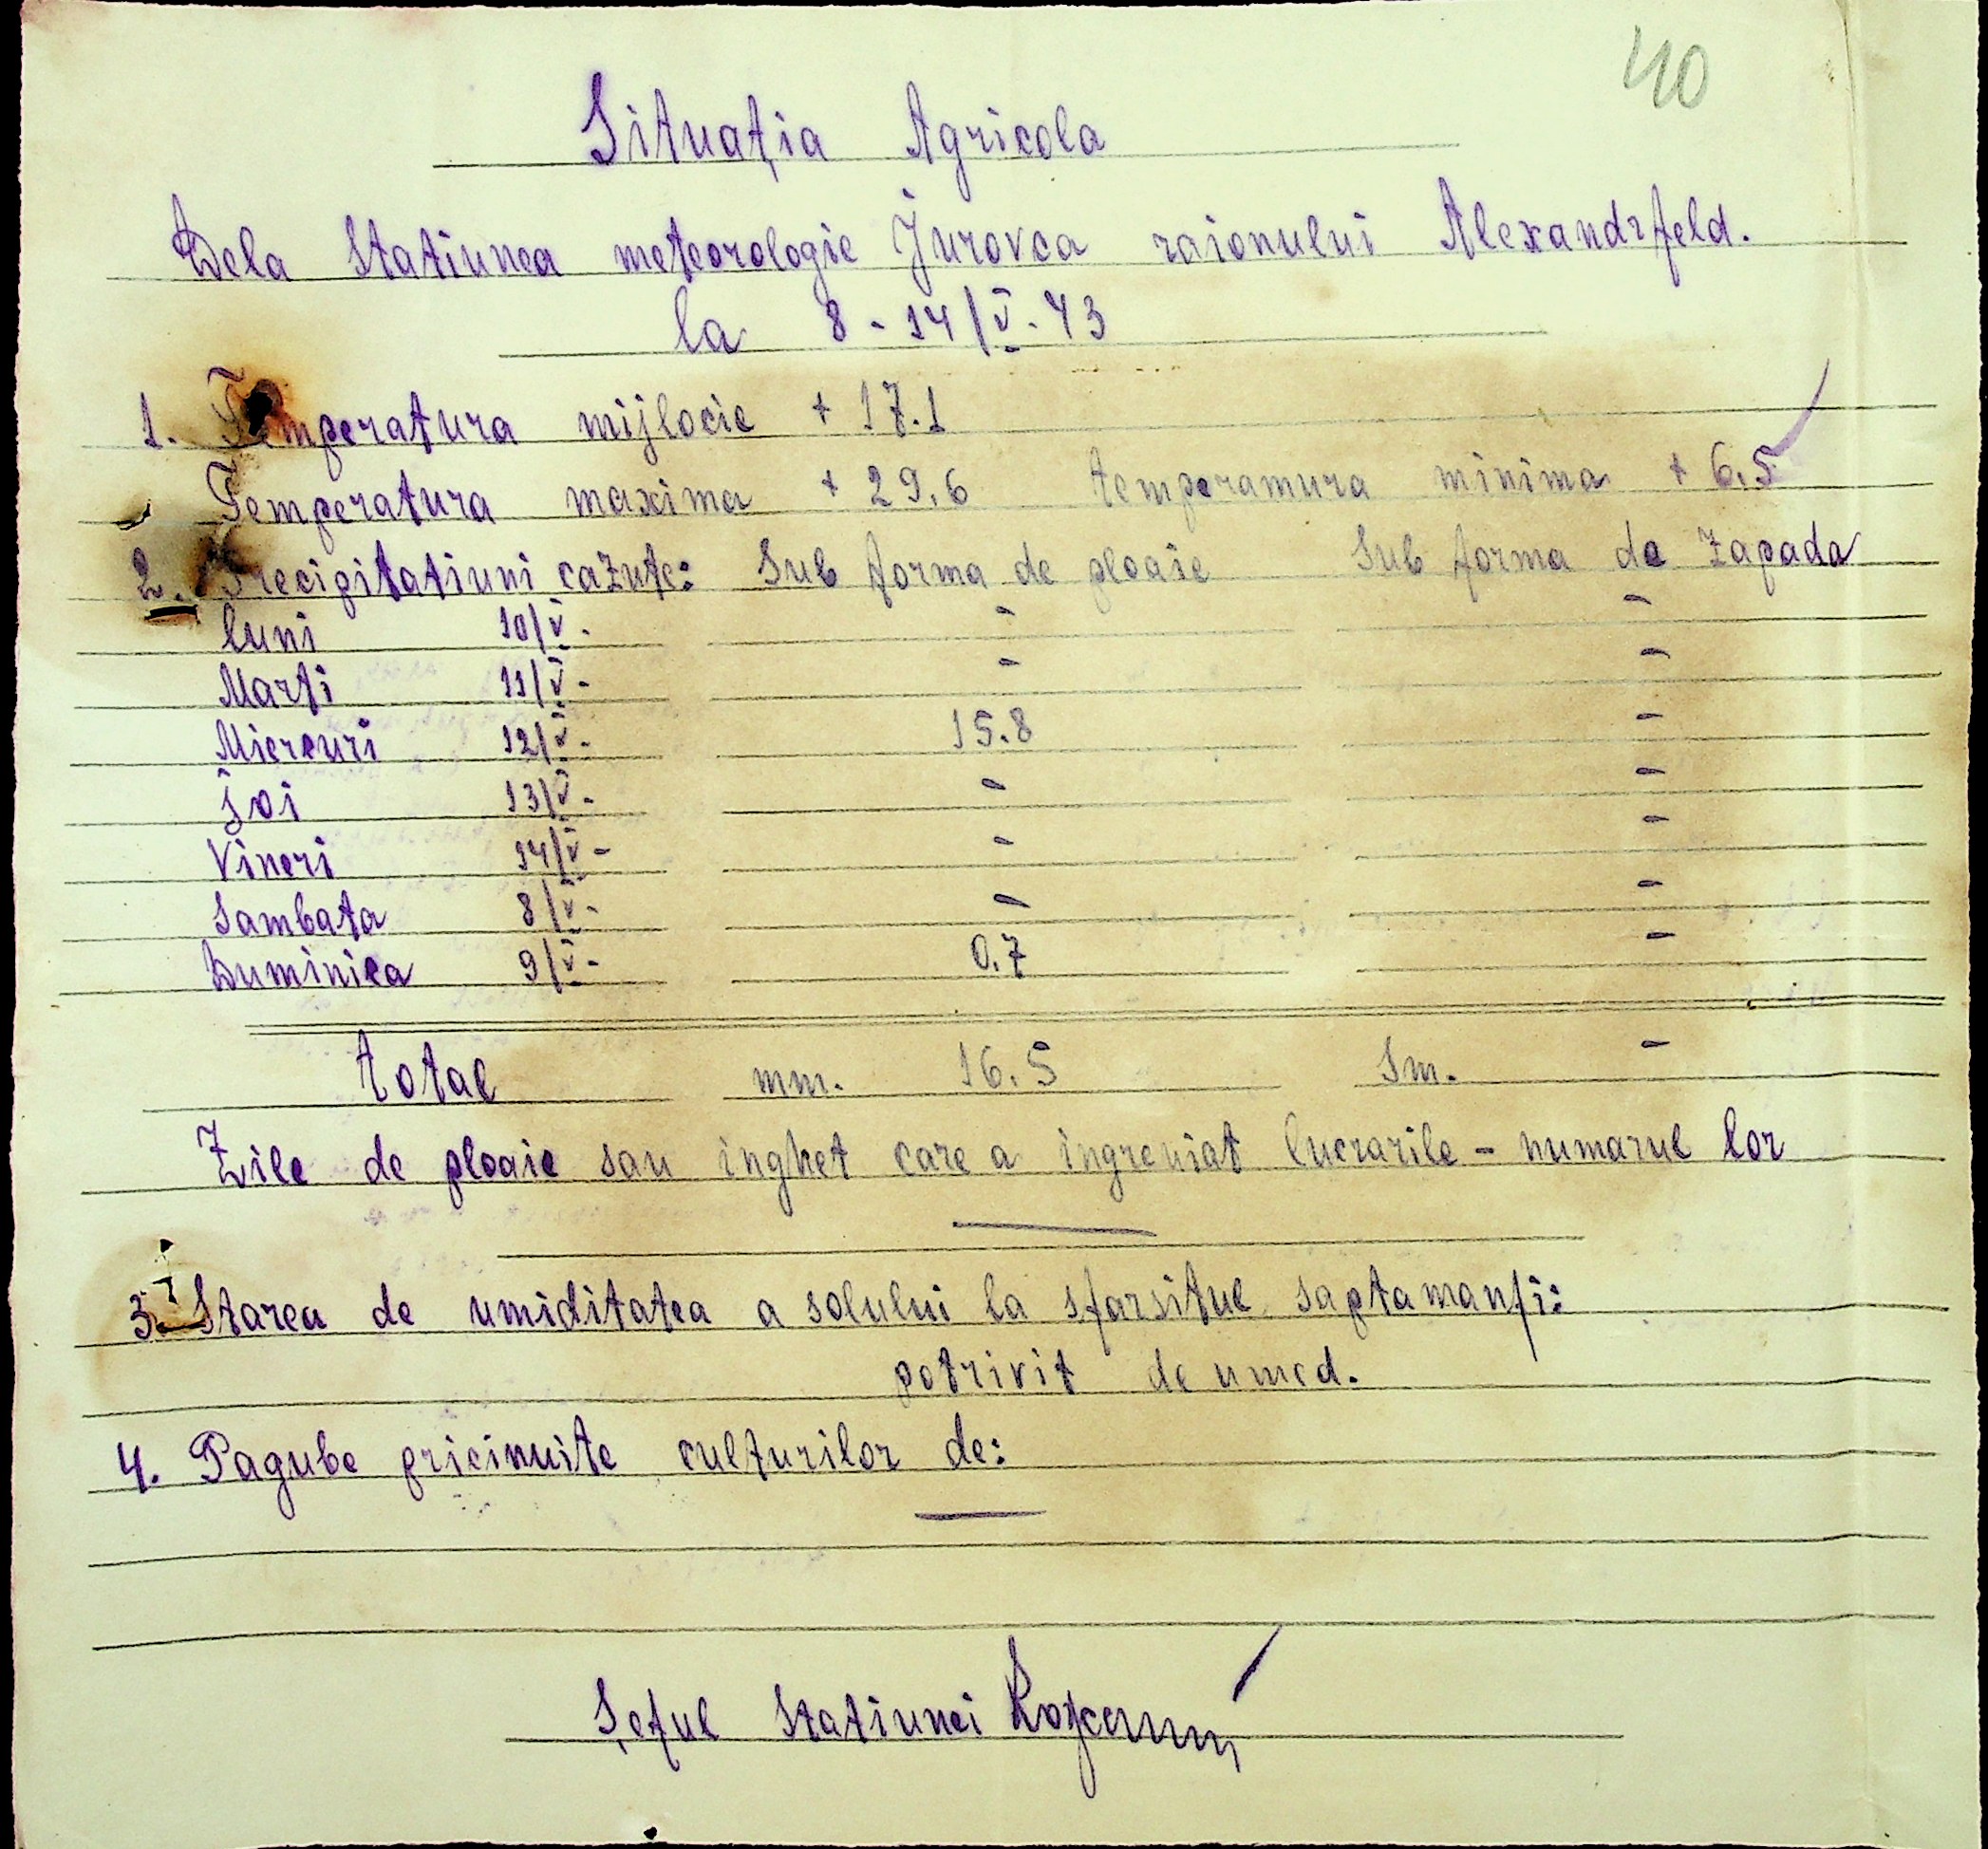 40
Situația Agricola
Dela Statiunea meteorologie Jurovca raionului Alexandrfeld.
la 8 - 14/V - 43
1. Temperatura mijlocie + 17.1
Temperatura maxima + 29.6 temperamura minima + 6.5
2. Precipitatiuni cazute: Sub forma de ploaie Sub forma de zapada
Luni 10/V - - -
Marti 11/V - - -
Miercuri 12/V - 15.8 -
Joi 13/V - - -
Vineri 14/V - - -
Sambata 8/V - - -
Duminica 9/V - 0.7 -
total mm. 16.5 Sm. -
Zile de ploaie sau inghet care a ingreuiat lucrarile - numarul lor
—
3. Starea de umiditatea a solului la sfarsitul saptamanii:
potrivit de umed.
4. Pagube pricinuite culturilor de:
—
Șeful Statiunei